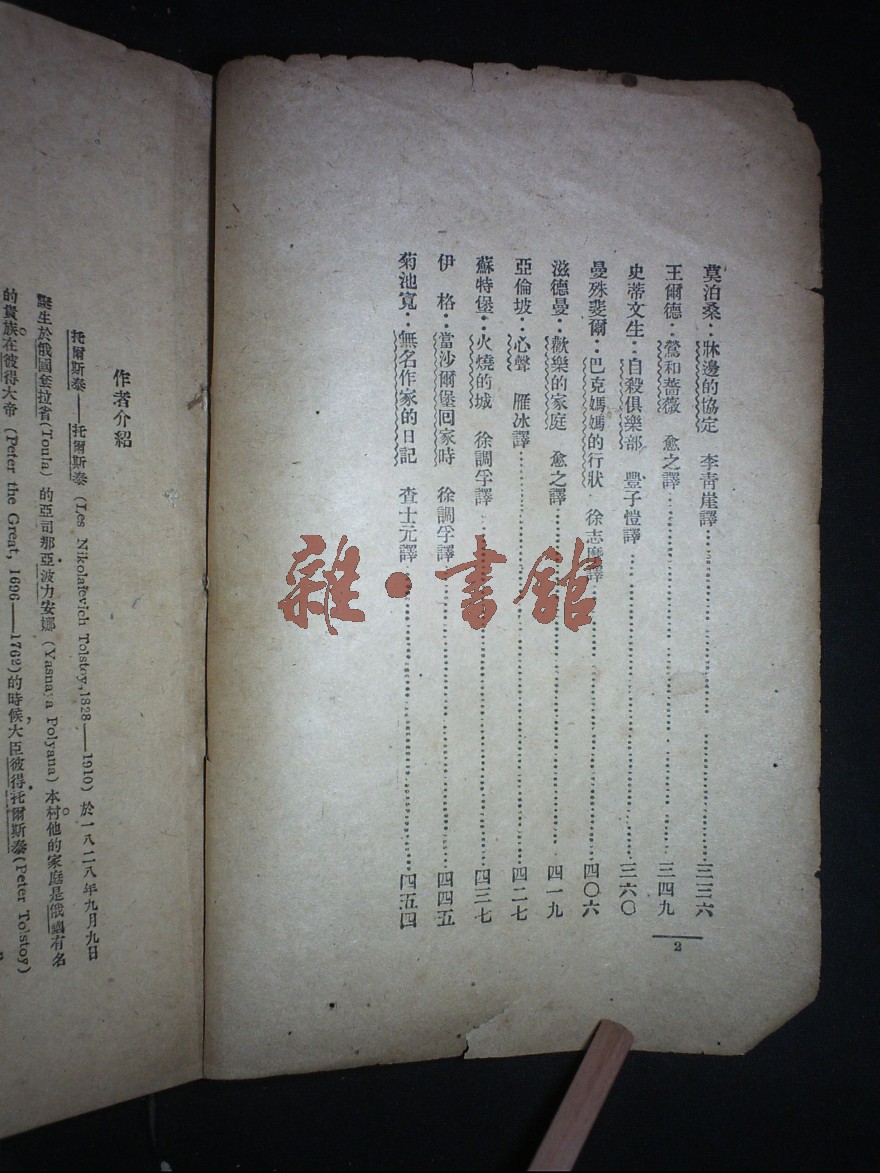 莫泊桑：牀邊的協定　李青崖譯……三三六
王爾德：鶯和薔薇　愈之譯……三四九
史蒂文生：自殺俱樂部　豐子愷譯……三六〇
曼殊斐爾：巴克媽媽的行狀　徐志摩譯……四〇六
滋德曼：歡樂的家庭　愈之譯……四一九
亞倫坡：心聲　雁冰譯……四二七
蘇特堡：火燒的城　徐調孚譯……四三七
伊　格：當沙爾堡回家時　徐調孚譯……四四五
菊池寬：無名作家的日記　查士元譯……四五四
2
雜·書館
作者介紹
托爾斯泰——托爾斯泰 (Les Nikolaievich Tolstoy, 1828——1910) 於一八二八年九月九日
誕生於俄國奎拉省 (Toula) 的亞司那亞波力安娜 (Yasnaya Polyana) 本村。他的家庭是俄國有名
的貴族。在彼得大帝 (Peter the Great, 1696——1762) 的時候，大臣彼得·托爾斯泰 (Peter Tolstoy)